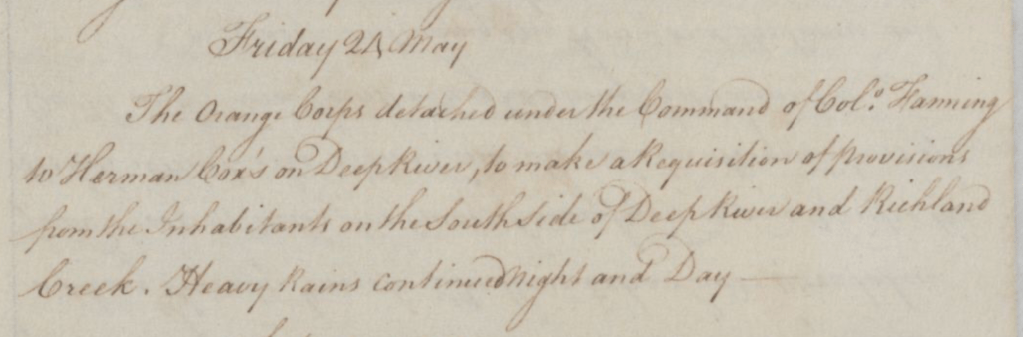 Friday 24 May
The Orange Corps detached under the Command of Colº. Fanning
to Herman Cox's on Deep River, to make a Requisition of provisions
from the Inhabitants on the South Side of Deep River and Richland
Creek. Heavy Rains continued Night and Day —